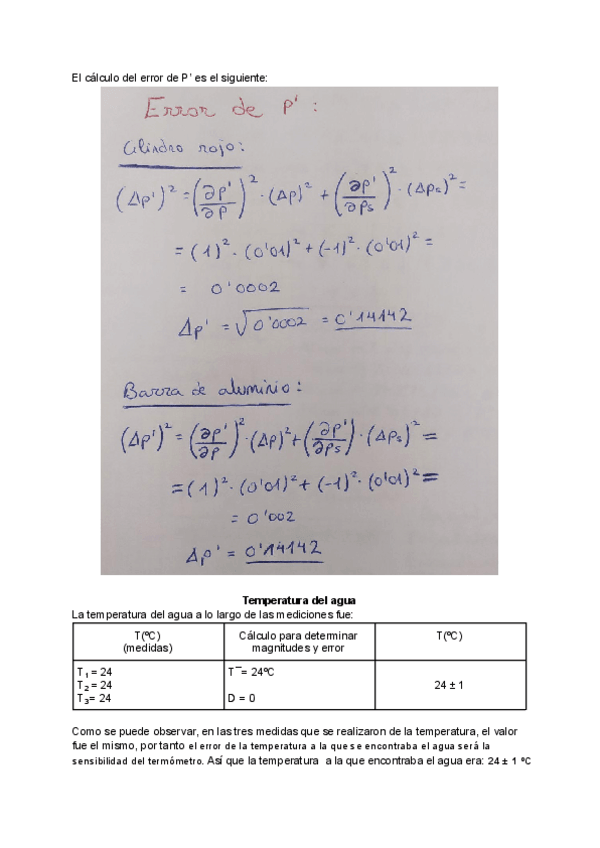 El cálculo del error de P' es el siguiente:
Error de P' :
Cilindro rojo:
(Δp')² = (∂p'/∂p)² · (Δp)² + (∂p'/∂ps)² · (Δps)² =
= (1)² · (0'01)² + (-1)² · (0'01)² =
= 0'0002
Δp' = √0'0002 = 0'14142
Barra de aluminio:
(Δp')² = (∂p'/∂p)² · (Δp)² + (∂p'/∂ps) · (Δps)² =
= (1)² · (0'01)² + (-1)² · (0'01)² =
= 0'002
Δp' = 0'14142
Temperatura del agua
La temperatura del agua a lo largo de las mediciones fue:
T(ºC) Cálculo para determinar T(ºC)
(medidas) magnitudes y error
T₁ = 24 T¯= 24ºC
T₂ = 24 24 ± 1
T₃= 24 D = 0
Como se puede observar, en las tres medidas que se realizaron de la temperatura, el valor
fue el mismo, por tanto el error de la temperatura a la que se encontraba el agua será la
sensibilidad del termómetro. Así que la temperatura a la que encontraba el agua era: 24 ± 1 ºC